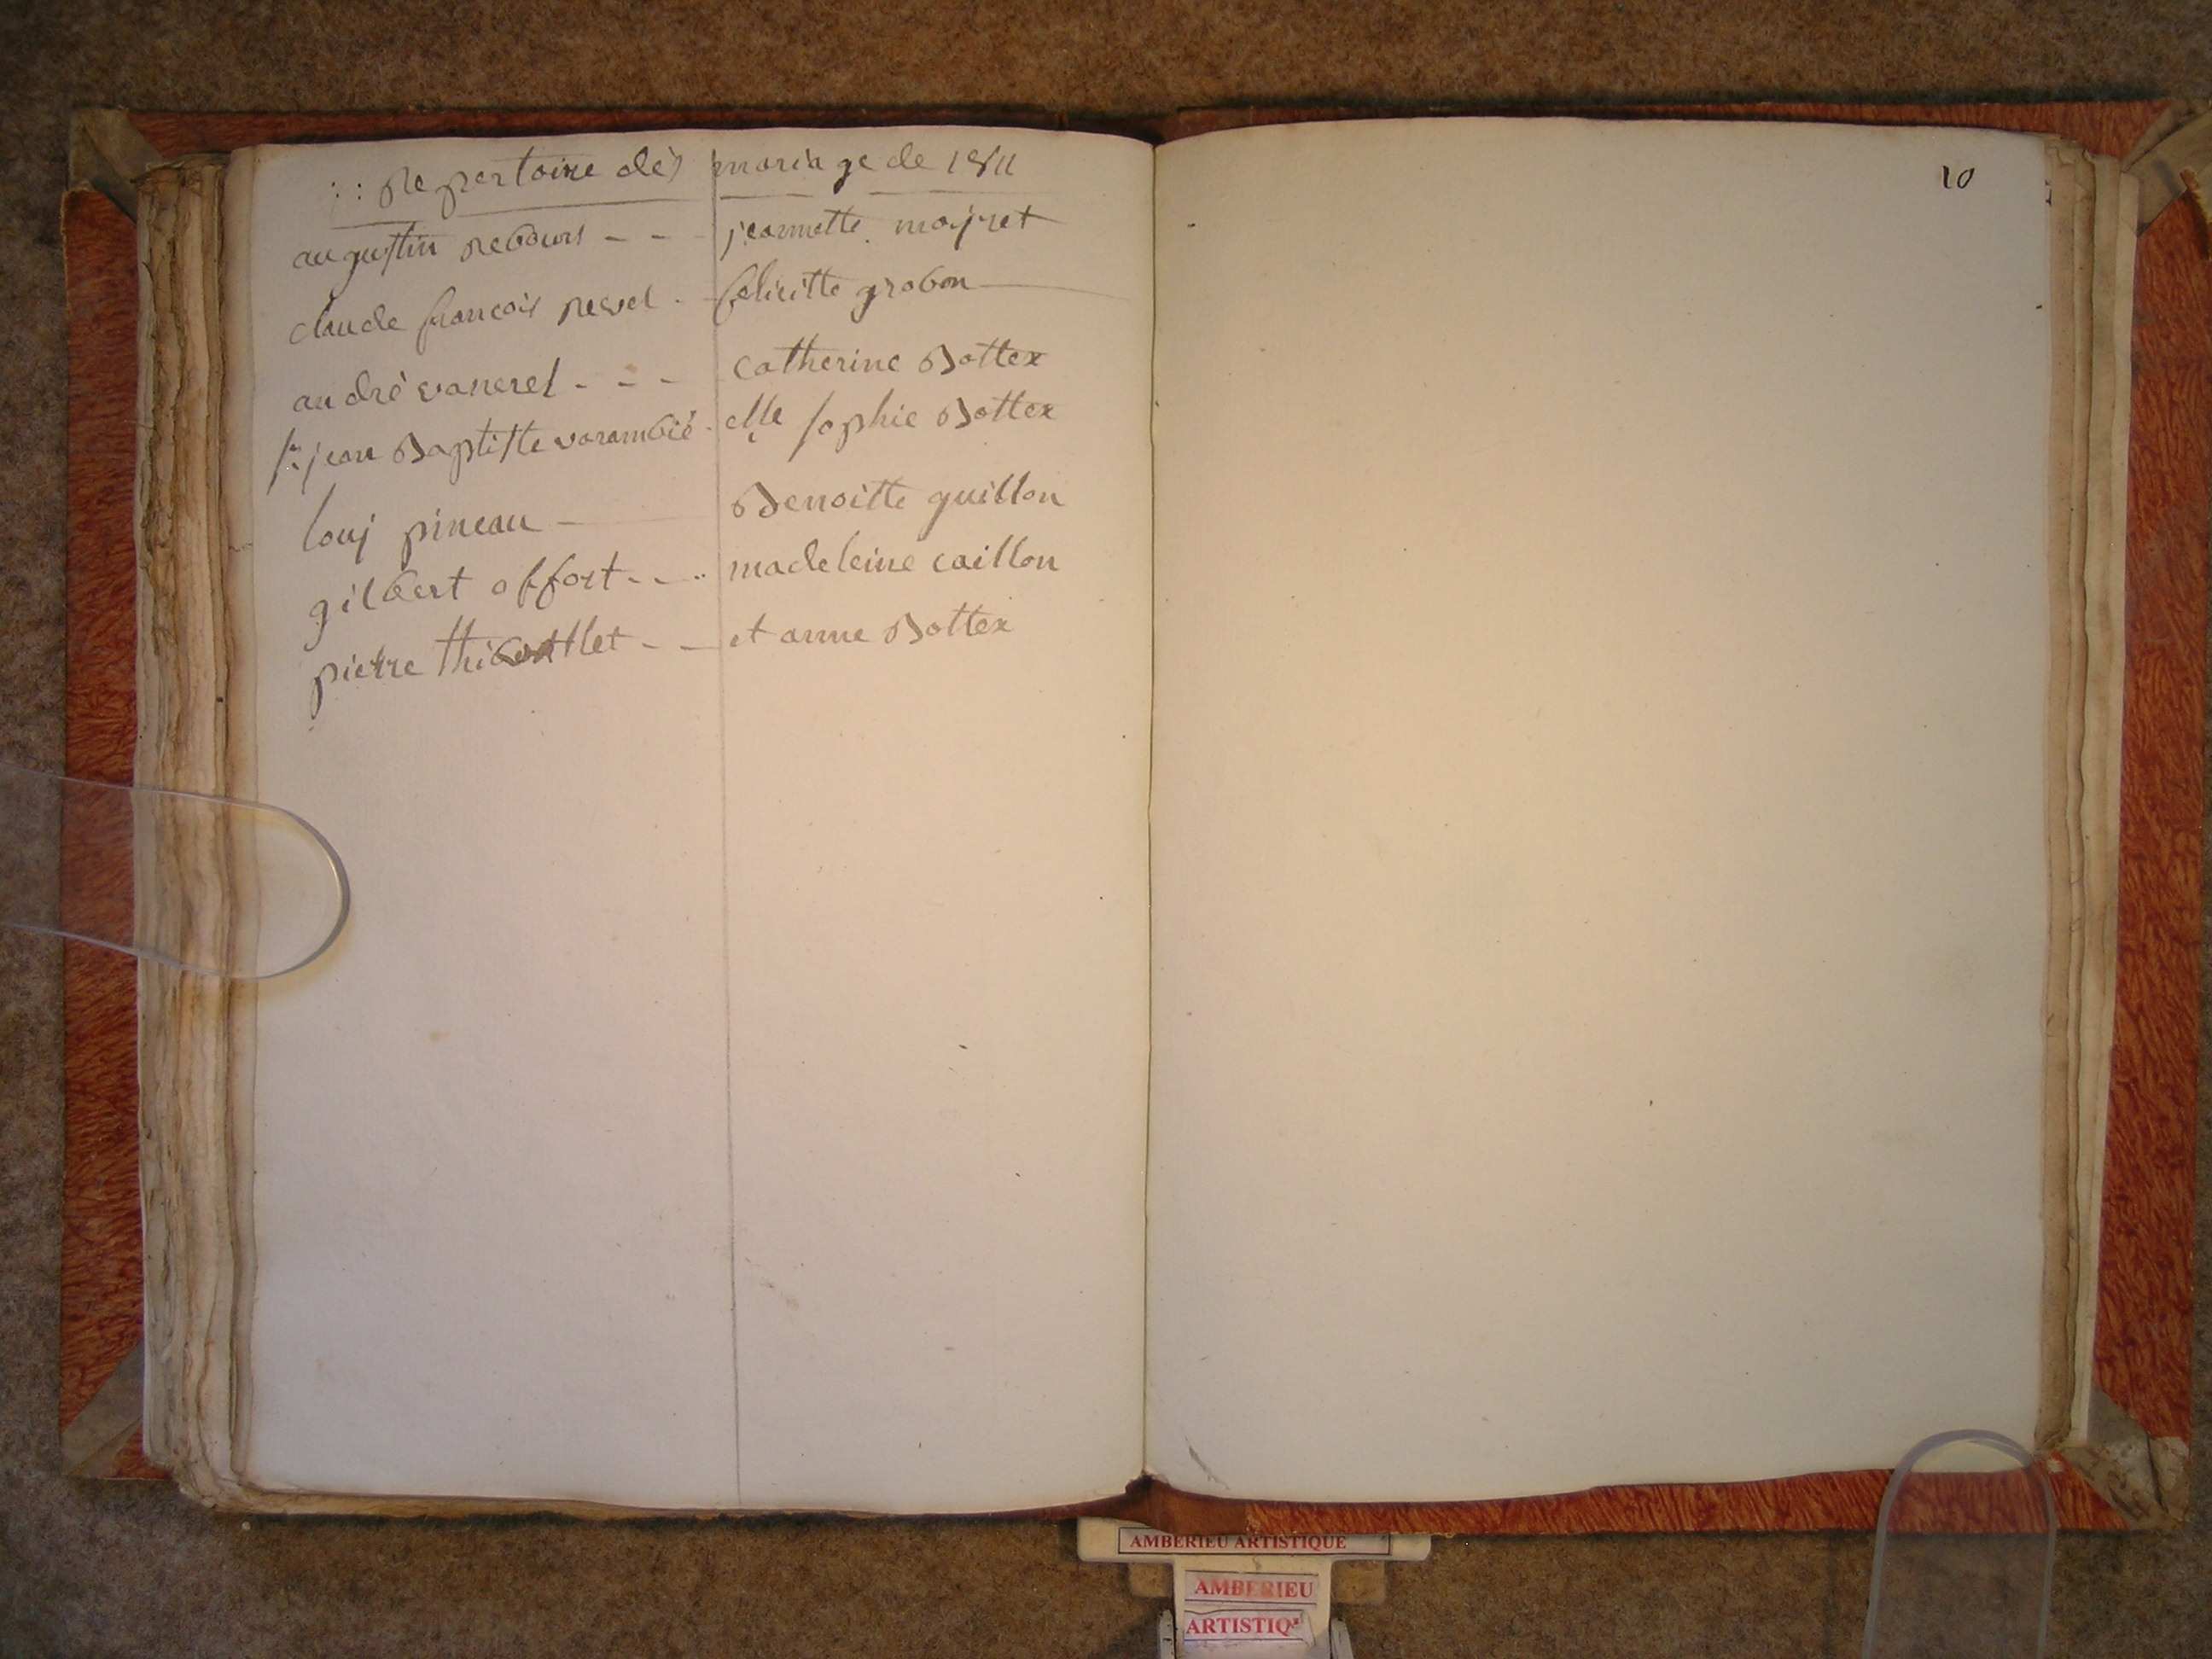 Repertoire des mariage de 1811
augustin rebours - - - jeannette mayret
claude francois revel - felicitte grobon
andré vanerel - - - catherine Bottex
sr jean Baptiste varambié - elle sophie Bottex
louj pineau - Benoitte guillon
gilbert offort - - - madeleine caillon
pierre - - et anne Bottex
10
AMBERIEU ARTISTIQUE
AMBERIEU
ARTISTIQ